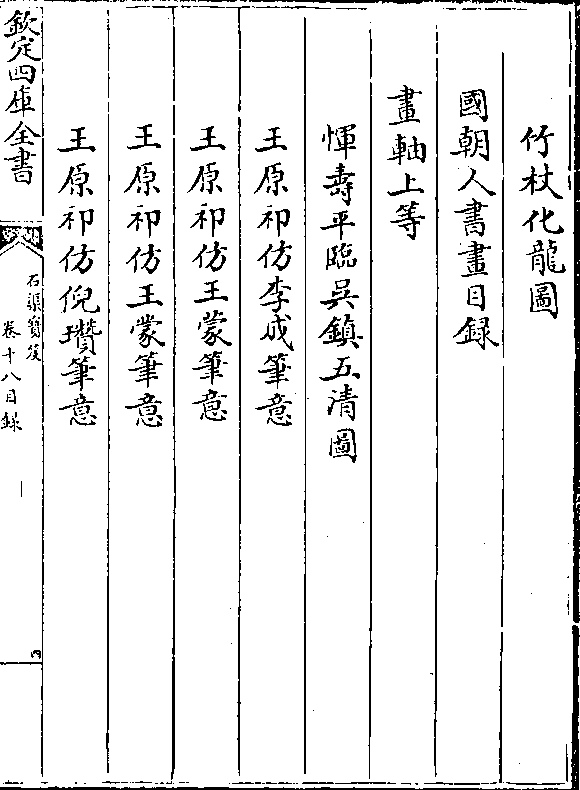 竹杖化龍圖
國朝人書畫目録
畫軸上等
惲壽平臨吳鎮五清圖
王原祁仿李成筆意
王原祁仿王蒙筆意
王原祁仿王蒙筆意
王原祁仿倪瓚筆意
欽定四庫全書
石渠寳笈
卷十八目録
四